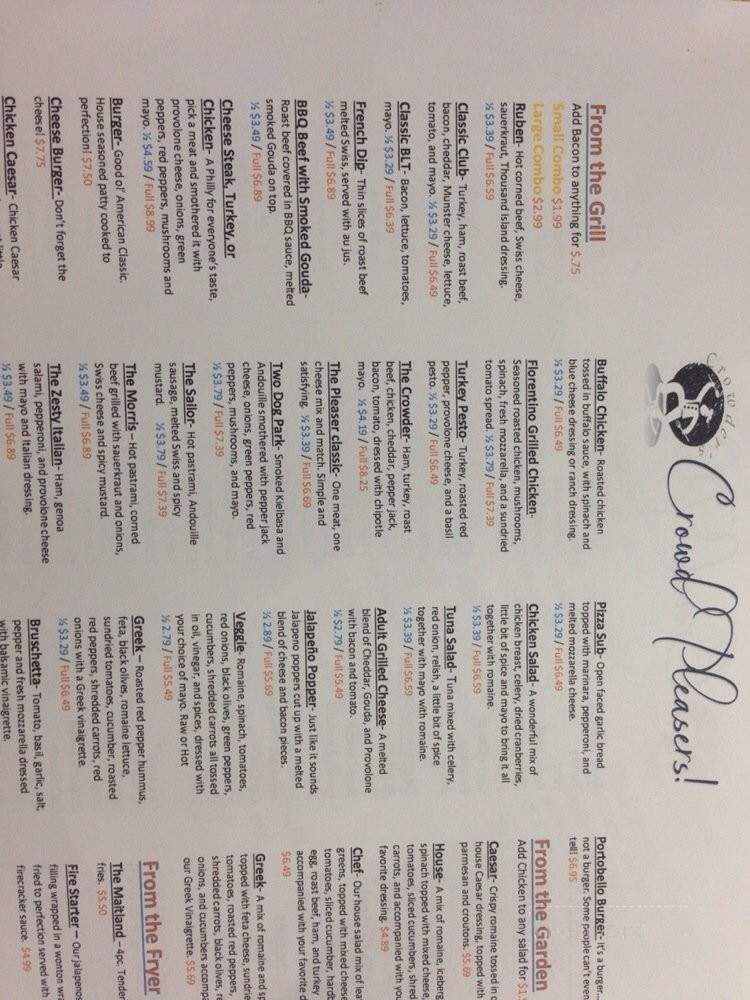 Crowd Pleasers!
From the Grill
Add Bacon to anything for $.75
Small Combo $1.99
Large Combo $2.99
Ruben- Hot corned beef, Swiss cheese,
sauerkraut, Thousand Island dressing.
½ $3.39 / Full $6.59
Classic Club- Turkey, ham, roast beef,
bacon, cheddar, Munster cheese, lettuce,
tomato, and mayo. ½ $3.29 / Full $6.49
Classic BLT- Bacon, lettuce, tomatoes,
mayo. ½ $3.29 / Full $6.39
French Dip- Thin slices of roast beef
melted Swiss, served with au jus.
½ $3.49 / Full $6.89
BBQ Beef with Smoked Gouda-
Roast beef covered in BBQ sauce, melted
smoked Gouda on top.
½ $3.49 / Full $6.89
Cheese Steak, Turkey, or
Chicken- A Philly for everyone's taste,
pick a meat and smothered it with
provolone cheese, onions, green
peppers, red peppers, mushrooms and
mayo. ½ $4.59 / Full $8.99
Burger- Good ol' American Classic.
House seasoned patty cooked to
perfection! $7.50
Cheese Burger- Don't forget the
cheese! $7.75
Chicken Caesar- Chicken Caesar
Buffalo Chicken- Roasted chicken
tossed in buffalo sauce, with spinach and
blue cheese dressing or ranch dressing.
½ $3.29 / Full $6.49
Florentino Grilled Chicken-
Seasoned roasted chicken, mushrooms,
spinach, fresh mozzarella, and a sundried
tomato spread. ½ $3.79 / Full $7.39
Turkey Pesto- Turkey, roasted red
pepper, provolone cheese, and a basil
pesto. ½ $3.29 / Full $6.49
The Crowder- Ham, turkey, roast
beef, chicken, cheddar, pepper jack,
bacon, tomato, dressed with chipotle
mayo. ½ $4.19 / Full $8.25
The Pleaser classic- One meat, one
cheese mix and match. Simple and
satisfying. ½ $3.39 / Full $6.69
Two Dog Park- Smoked Kielbasa and
Andouille smothered with pepper jack
cheese, onions, green peppers, red
peppers, mushrooms, and mayo.
½ $3.79 / Full $7.39
The Sailor- Hot pastrami, Andouille
sausage, melted Swiss and spicy
mustard. ½ $3.79 / Full $7.39
The Morris – Hot pastrami, corned
beef grilled with sauerkraut and onions,
Swiss cheese and spicy mustard.
½ $3.49 / Full $6.89
The Zesty Italian- Ham, genoa
salami, pepperoni, and provolone cheese
with mayo and Italian dressing.
½ $3.49 / Full $6.89
Pizza Sub- Open faced garlic bread
topped with marinara, pepperoni, and
melted mozzarella cheese.
½ $3.29 / Full $6.49
Chicken Salad- A wonderful mix of
chicken breast, celery, dried cranberries,
little bit of spice and mayo to bring it all
together with romaine.
½ $3.39 / Full $6.59
Tuna Salad- Tuna mixed with celery,
red onion, relish, a little bit of spice
together with mayo with romaine.
½ $3.39 / Full $6.59
Adult Grilled Cheese- A melted
blend of Cheddar, Gouda, and Provolone
with bacon and tomato.
½ $2.79 / Full $5.49
Jalapeño Popper- Just like it sounds
Jalapeno poppers cut up with a melted
blend of cheese and bacon pieces.
½ 2.89 / Full $5.69
Veggie- Romaine, spinach, tomatoes,
red onions, black olives, green peppers,
cucumbers, shredded carrots all tossed
in oil, vinegar, and spices, dressed with
your choice of mayo. Raw or Hot
½ 2.79 / Full $5.49
Greek – Roasted red pepper hummus,
feta, black olives, romaine lettuce,
sundried tomatoes, cucumber, roasted
red peppers, shredded carrots, red
onions with a Greek vinaigrette.
½ $3.29 / Full $6.49
Bruschetta- Tomato, basil, garlic, salt,
pepper and fresh mozzarella dressed
with balsamic vinaigrette.
Portobello Burger- It's a burger.
not a burger. Some people can't even
tell! $6.95
From the Garden
Add Chicken to any salad for $1.
Caesar- Crispy romaine tossed in
house Caesar dressing, topped with
parmesan and croutons. $5.69
House- A mix of romaine, iceberg
spinach topped with mixed cheese,
tomatoes, sliced cucumbers, shred
carrots, and accompanied with you
favorite dressing. $4.89
Chef- Our house salad mix of lea
greens, topped with mixed cheese
tomatoes, sliced cucumber, hard
egg, roast beef, ham, and turkey
accompanied with your favorite d
$6.49
Greek- A mix of romaine and sp
topped with feta cheese, sundrie
tomatoes, roasted red peppers,
shredded carrots, black olives, r
onions, and cucumbers accomp
our Greek Vinaigrette. $5.69
From the Fryer
The Maitland – 4pc. Tender
fries. $5.50
Fire Starter – Our jalapenos
filling wrapped in a wonton wr
fried to perfection served with
firecracker sauce. $4.99